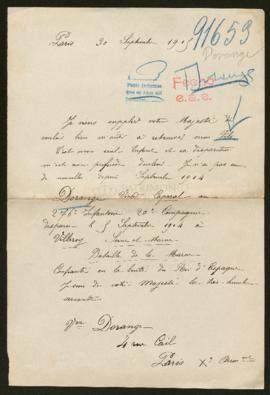 Paris 30 Septembre 1915
91653
Dorange
Fecho
c.c.c.
Je viens supplier votre Majesté de
vouloir bien m'aider à retrouver mon Fils
C'est mon seul Enfant et sa disparition
m'est une profonde douleur. Je n'ai pas eu
de nouvelle depuis Septembre 1914
Dorange Caporal au
276e Infanterie 20e Compagnie
disparu le 5 Septembre 1914 à
Villeroy Seine et Marne
Bataille de la Marne
Confiante en la bonté du Roi d'Espagne
Je suis de votre Majesté la très humble
servante
Vve Dorange
4 rue Cail
Paris Xe Arron